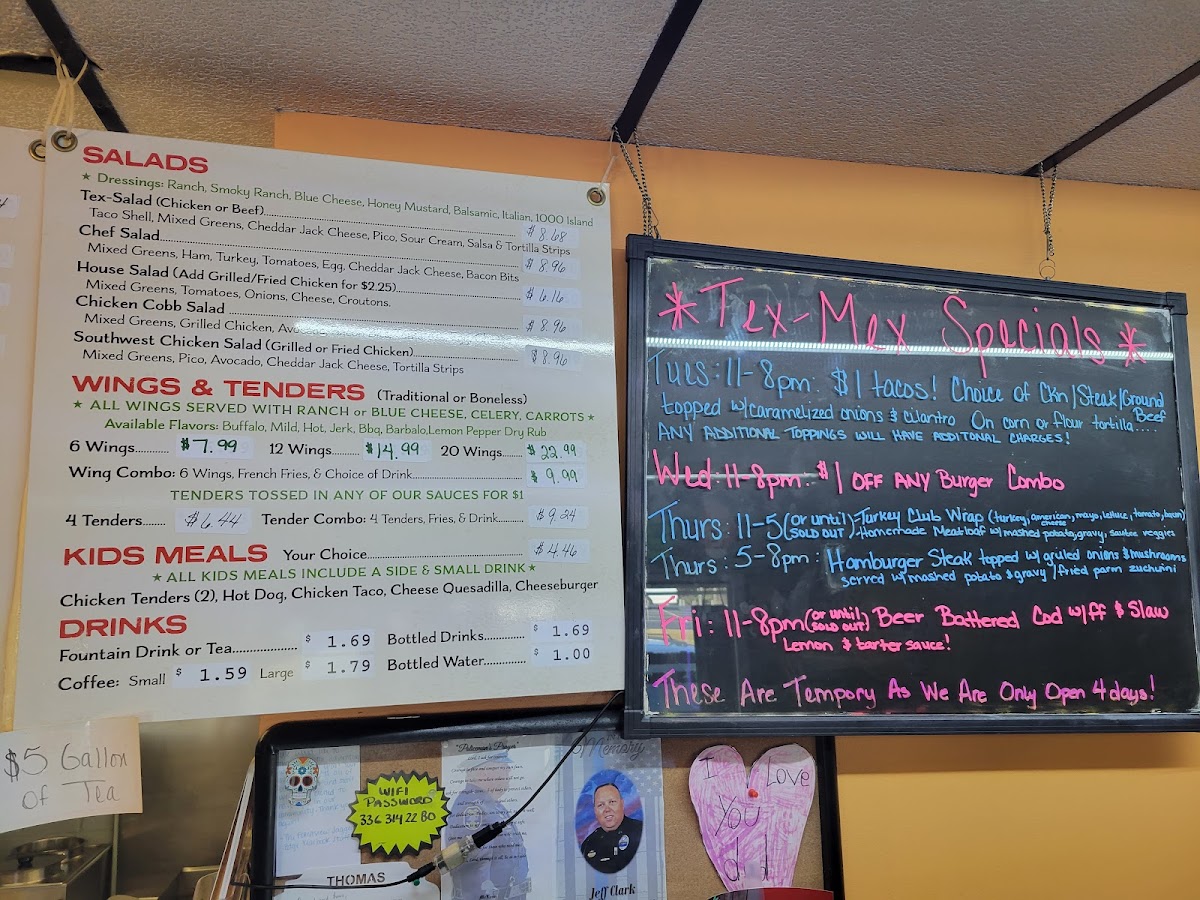 SALADS
★ Dressings: Ranch, Smoky Ranch, Blue Cheese, Honey Mustard, Balsamic, Italian, 1000 Island
Tex-Salad (Chicken or Beef)........ $ 8.68
Taco Shell, Mixed Greens, Cheddar Jack Cheese, Pico, Sour Cream, Salsa & Tortilla Strips
Chef Salad........ $ 8.96
Mixed Greens, Ham, Turkey, Tomatoes, Egg, Cheddar Jack Cheese, Bacon Bits
House Salad (Add Grilled/Fried Chicken for $2.25)........ $ 6.16
Mixed Greens, Tomatoes, Onions, Cheese, Croutons.
Chicken Cobb Salad ........ $ 8.96
Mixed Greens, Grilled Chicken,
Southwest Chicken Salad (Grilled or Fried Chicken)........ $ 8.96
Mixed Greens, Pico, Avocado, Cheddar Jack Cheese, Tortilla Strips
WINGS & TENDERS (Traditional or Boneless)
★ ALL WINGS SERVED WITH RANCH or BLUE CHEESE, CELERY, CARROTS ★
Available Flavors: Buffalo, Mild, Hot, Jerk, Bbq, Barbalo, Lemon Pepper Dry Rub
6 Wings........ $7.99 12 Wings........ $14.99 20 Wings........ $22.99
Wing Combo: 6 Wings, French Fries, & Choice of Drink........ $ 9.99
TENDERS TOSSED IN ANY OF OUR SAUCES FOR $1
4 Tenders....... $6.44 Tender Combo: 4 Tenders, Fries, & Drink........ $9.24
KIDS MEALS Your Choice........ $4.46
★ ALL KIDS MEALS INCLUDE A SIDE & SMALL DRINK ★
Chicken Tenders (2), Hot Dog, Chicken Taco, Cheese Quesadilla, Cheeseburger
DRINKS
Fountain Drink or Tea........ $ 1.69 Bottled Drinks........ $ 1.69
Coffee: Small $ 1.59 Large $ 1.79 Bottled Water........ $ 1.00
*Tex-Mex Specials*
Tues: 11-8pm: $1 tacos! Choice of Ckn/Steak/Ground Beef
topped w/caramelized onions & cilantro On corn or flour tortilla....
ANY ADDITIONAL TOPPINGS WILL HAVE ADDITONAL CHARGES!
Wed: 11-8pm: $1 OFF ANY Burger Combo
Thurs: 11-5 (or until SOLD OUT)-Turkey Club Wrap (turkey, american cheese, mayo, lettuce, tomato, bacon)
-Homemade Meatloaf w/mashed potato, gravy, sautee veggies
Thurs: 5-8pm: Hamburger Steak topped w/ grilled onions & mushrooms
served w/ mashed potato & gravy /fried parm zuchuini
Fri: 11-8pm (or until SOLD OUT) Beer Battered Cod w/ff & Slaw
Lemon & tarter sauce!
These Are Tempory As We Are Only Open 4 days!
$5 Gallon
of Tea
WIFI
PASSWORD
336 314 22 80
"Policeman's Prayer"
Memory
THOMAS
Jeff Clark
I Love
You